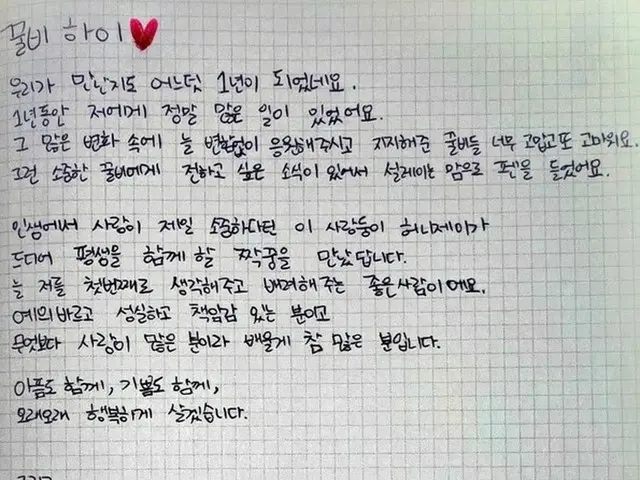 꿀비 하이
우리가 만난지도 어느덧 1년이 되었네요.
1년동안 저에게 정말 많은 일이 있었어요.
그 많은 변화 속에 늘 변함없이 응원해주시고 지지해준 꿀비들 너무 고맙고 또 고마워요.
그런 소중한 꿀비에게 전하고 싶은 소식이 있어서 설레이는 맘으로 펜을 들었어요.
인생에서 사랑이 제일 소중하다던 이 사랑둥이 허니제이가
드디어 평생을 함께 할 짝꿍을 만났답니다.
늘 저를 첫번째로 생각해주고 배려해 주는 좋은 사람이에요.
예의바르고 성실하고 책임감 있는 분이고
무엇보다 사랑이 많은 분이라 배울게 참 많은 분입니다.
아픔도 함께, 기쁨도 함께,
오래오래 행복하게 살겠습니다.